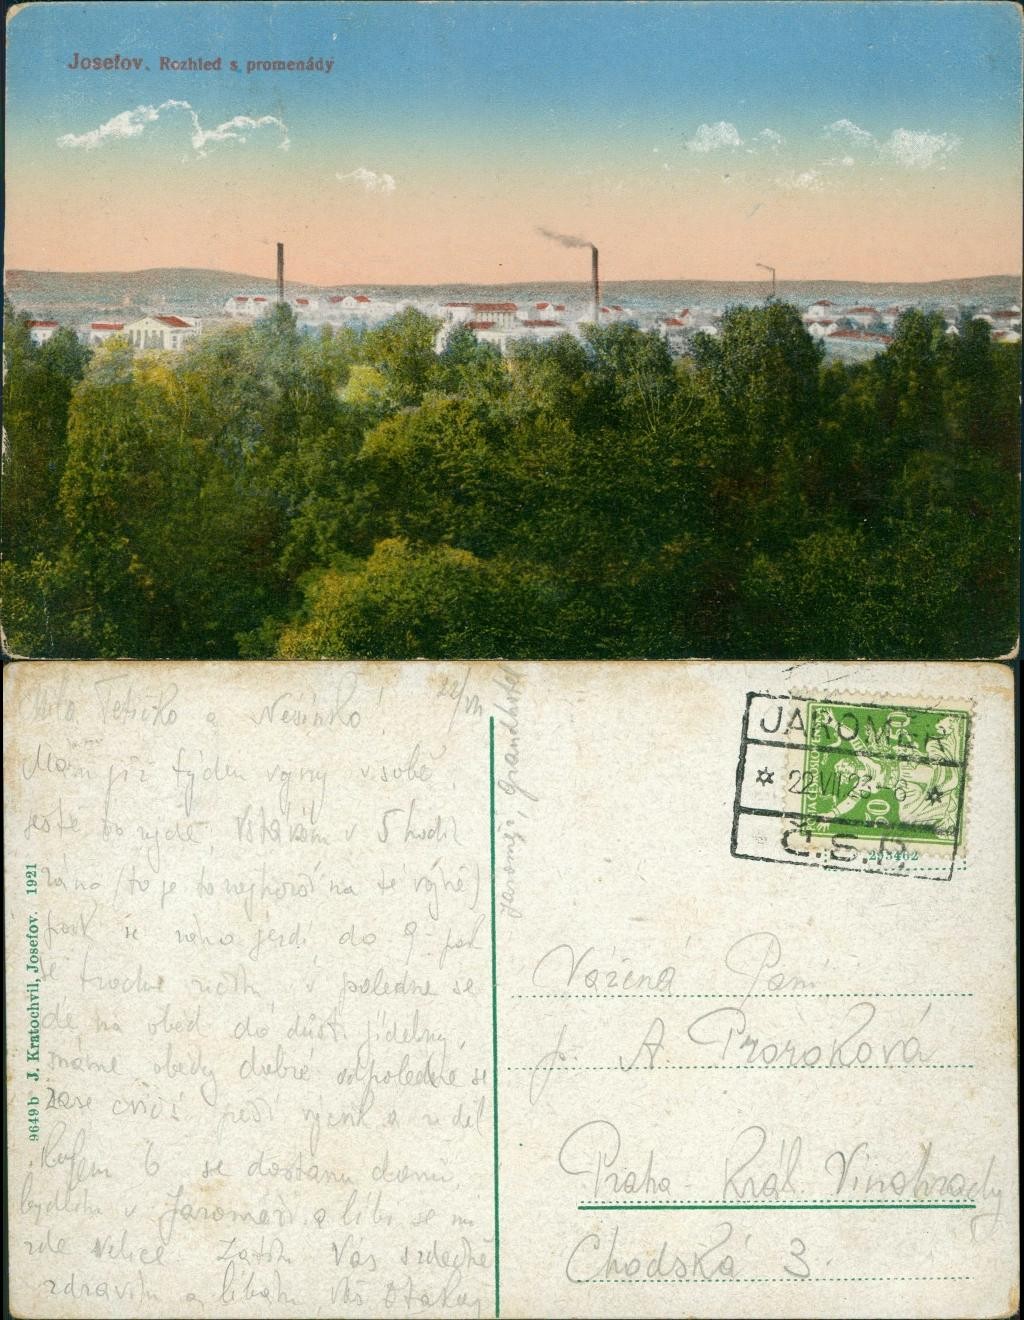 Josefov. Rozhled s promenády
Tetičko a
22/VII
Mám již týden vojny v sobě
ještě to ujde. Vstávám v 5 hodin
ráno (to je to nejhorší na té vojně)
pak se jezdí do 9 pak
se trochu v poledne se
jde na oběd do důst. jídelny,
máme obědy dobré odpoledne se
zase cvičí pěší výcvik a
Kolem 6 se dostanu domů,
bydlím v Jaroměři a líbí se mi
zde velice. Zatím Vás srdečně
zdravím a líbám, Váš Otakar
Jaroměř, Grandhotel
9649b J. Kratochvil, Josefov. 1921
JAROMĚŘ
22.VII.23-8
Č.S.P.
50
50
253462
Vážená Paní
p. A. Prorokova
Praha - Král. Vinohrady
Chodská 3.